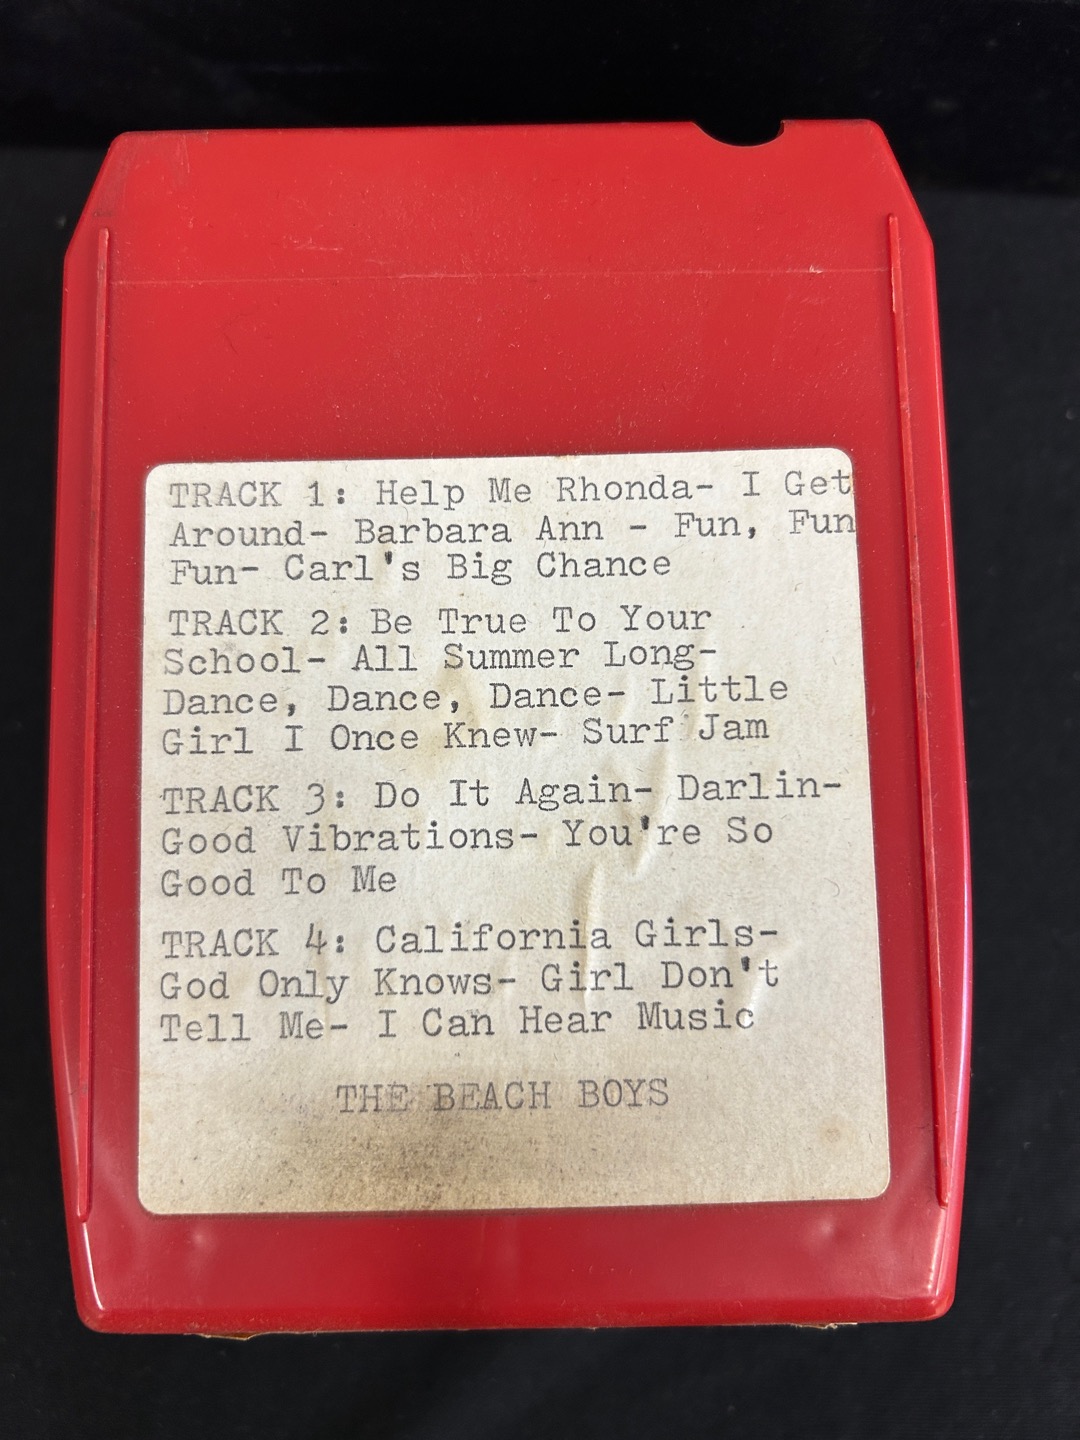 TRACK 1: Help Me Rhonda- I Get
Around- Barbara Ann - Fun, Fun
Fun- Carl's Big Chance
TRACK 2: Be True To Your
School- All Summer Long-
Dance, Dance, Dance- Little
Girl I Once Knew- Surf Jam
TRACK 3: Do It Again- Darlin-
Good Vibrations- You're So
Good To Me
TRACK 4: California Girls-
God Only Knows- Girl Don't
Tell Me- I Can Hear Music
THE BEACH BOYS